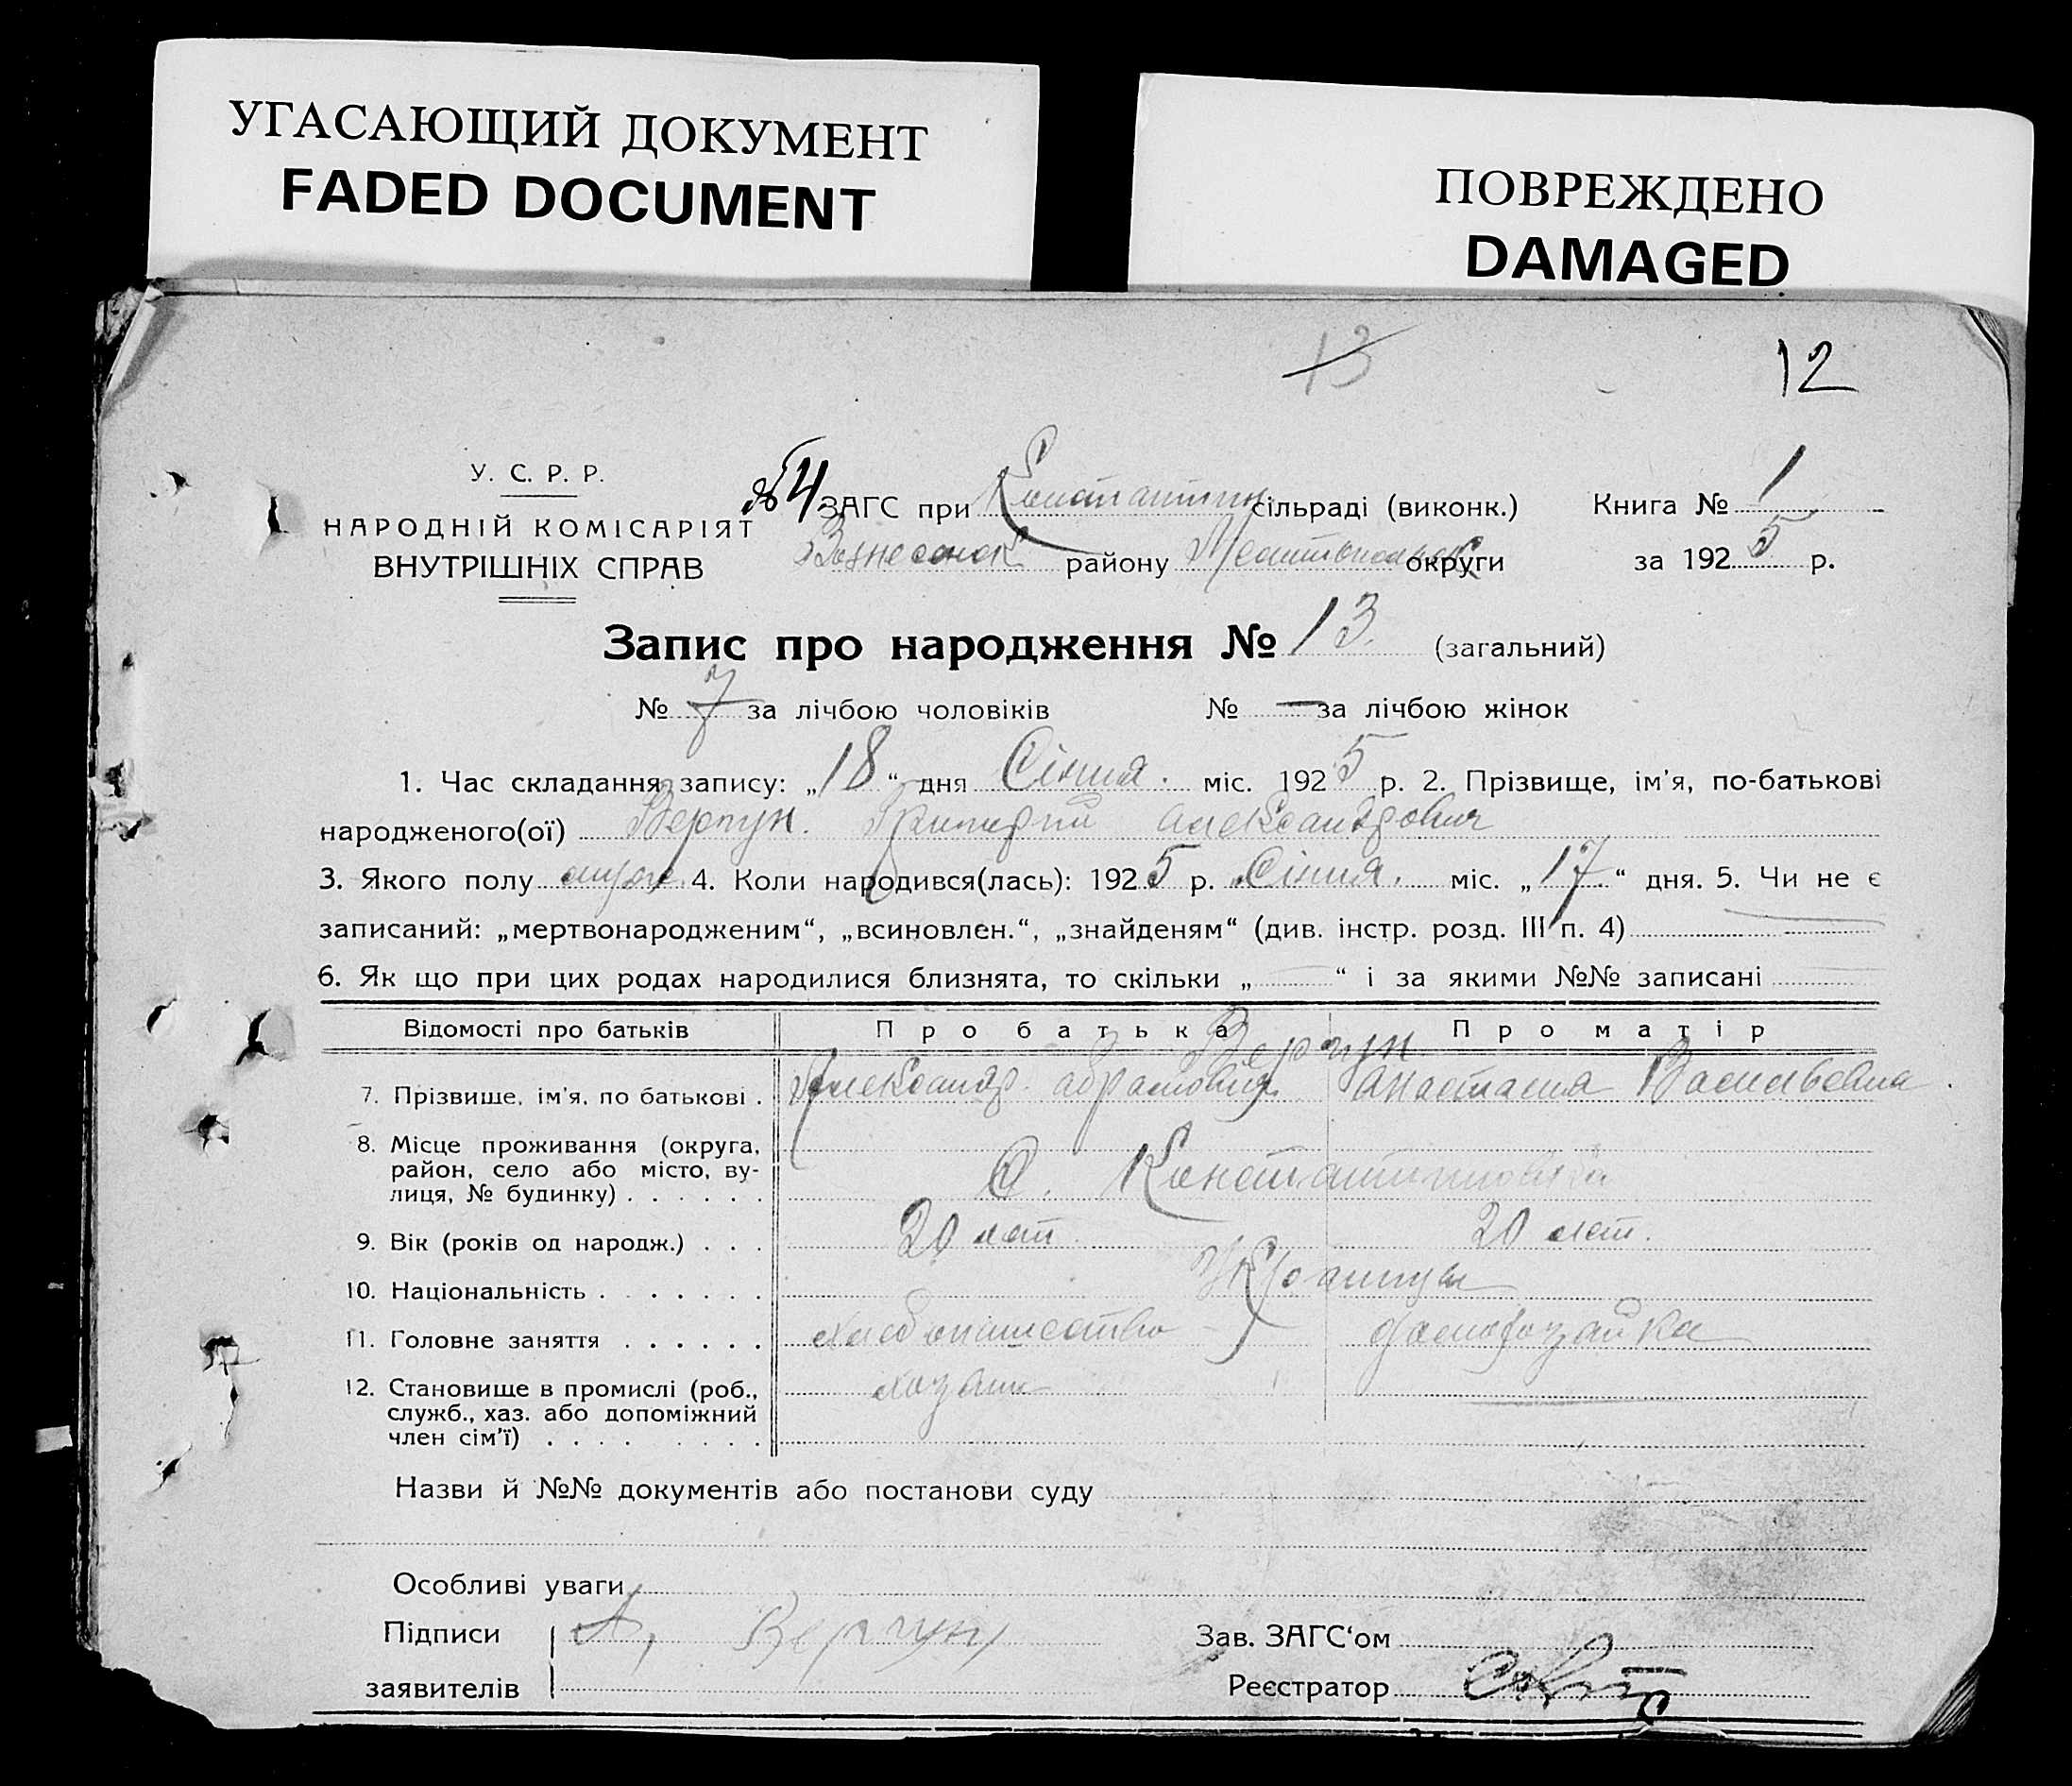 УГАСАЮЩИЙ ДОКУМЕНТ
FADED DOCUMENT
ПОВРЕЖДЕНО
DAMAGED
13
12
У. С. Р. Р.
НАРОДНІЙ КОМІСАРІЯТ
ВНУТРІШНІХ СПРАВ
4 ЗАГС при Константин сільраді (виконк.)
Вознесенск району округи
Книга № 1
за 1925 р.
Запис про народження № 13 (загальний)
№ 7 за лічбою чоловіків № — за лічбою жінок
1. Час складання запису: „18“ дня Січня. міс. 1925 р. 2. Прізвище, ім'я, по-батькові
народженого(ої) Вергун. Григорій Александрович
3. Якого полу 4. Коли народився(лась): 1925 р. Січня. міс. „17.“ дня. 5. Чи не є
записаний: „мертвонародженим“, „всиновлен.“, „знайденям“ (див. інстр. розд. III п. 4)
6. Як що при цих родах народилися близнята, то скільки „ “ і за якими №№ записані
Відомості про батьків Про батька Про матір
Вергун
7. Прізвище, ім'я, по батькові . Александр. Абрамович Анастасия Васильевна
8. Місце проживання (округа,
район, село або місто, ву-
лиця, № будинку) . . . . . . С. Константиновка
9. Вік (років од народж.) . . . 20 лет. 20 лет.
10. Національність . . . . . . . Украинцы
11. Головне заняття . . . . . . хлебопашество домохозайка
12. Становище в промислі (роб., хозаин
служб., хаз. або допоміжний
член сім'ї) . . . . . . . .
Назви й №№ документів або постанови суду
Особливі уваги
Підписи А, Вергун
заявителів
Зав. ЗАГС‘ом
Реєстратор